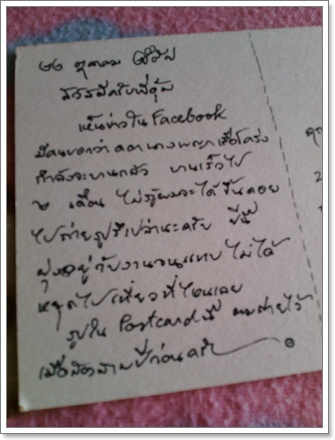 ๒๖ ตุลาคม ๒๕๕๕
สวัสดีครับพี่อุ้ย
เห็นข่าวใน Facebook
มีคนบอกว่า ดอกนางพญาเสือโคร่ง
กำลังจะบานแล้ว บานเร็วไป
๒ เดือน ไม่รู้ผมจะได้ขึ้นดอย
ไปถ่ายรูปรึเปล่านะครับ ปีนี้
ยุ่งอยู่กับงานจนแทบไม่ได้
หยุดไปเที่ยวที่ไหนเลย
รูปใน Postcard นี้ ผมถ่ายไว้
เมื่อสองสามปีก่อนครับ